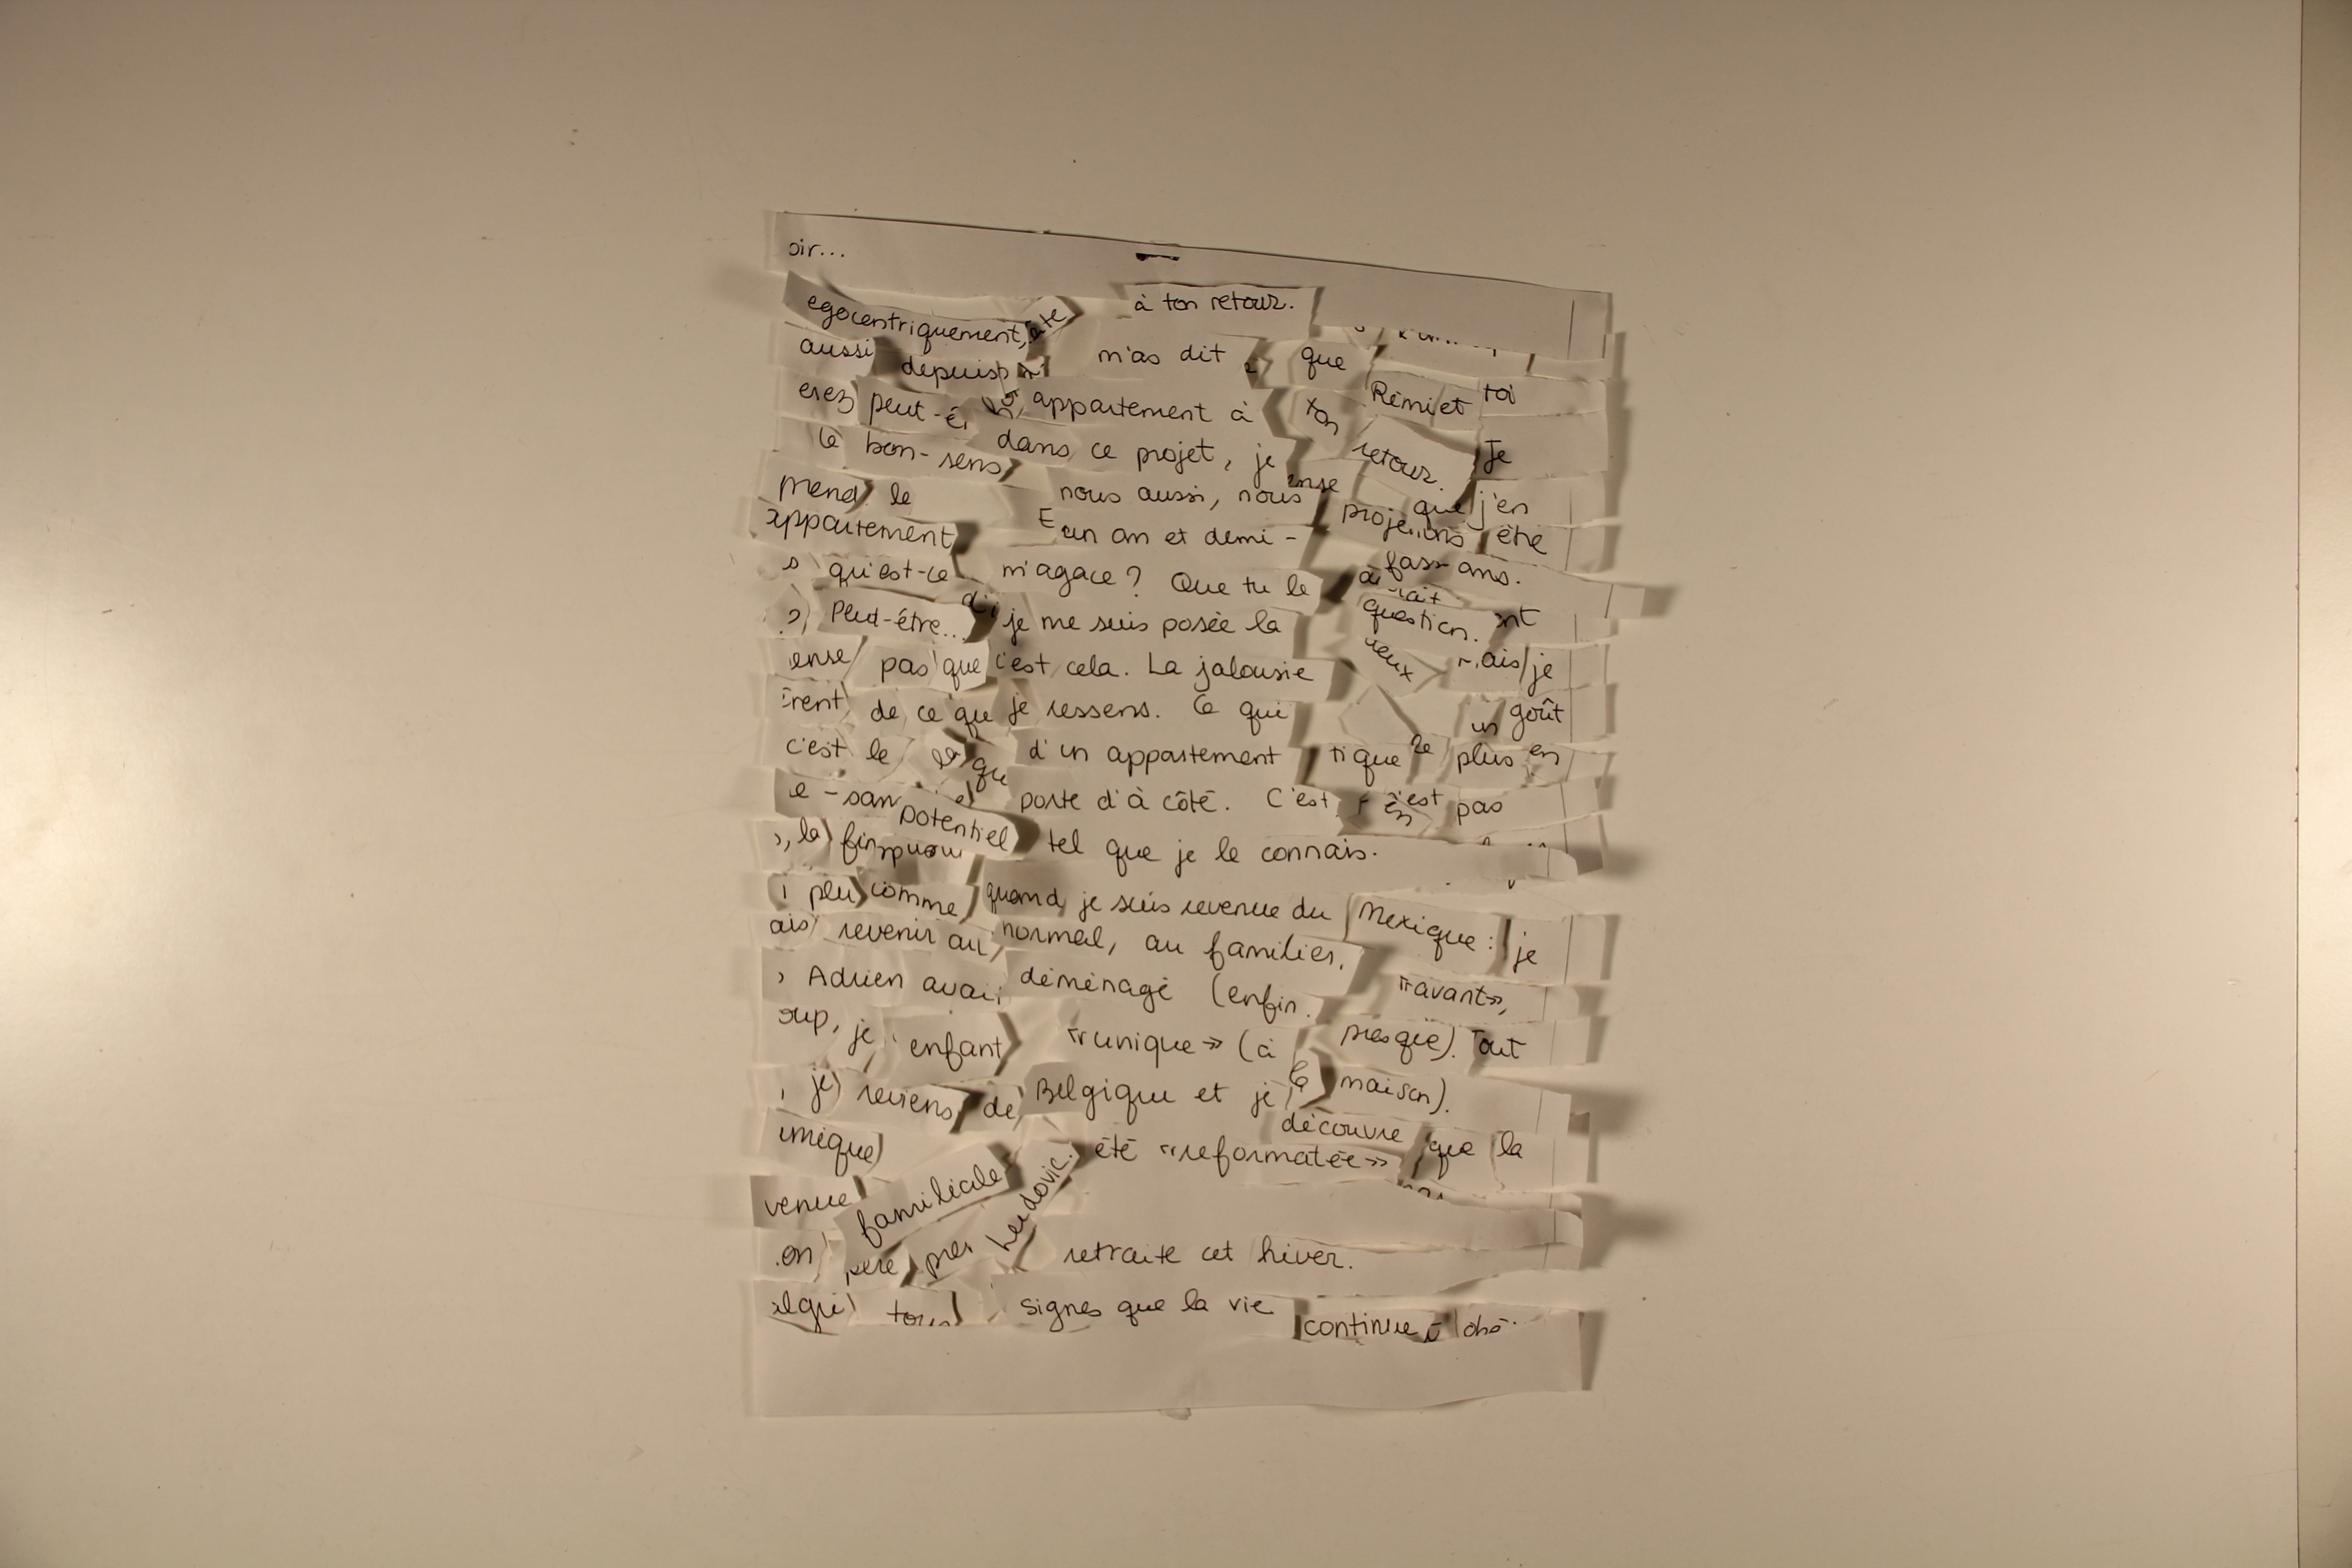 oir...
egocentriquement, à ton retour.
aussi depuis m'as dit que
erez peut-ê appartement à ton Rémi et toi
le bon-sens dans ce projet, je retour. Je
prend le nous aussi, nous ense que j'en
appartement un an et demi - projetions être
s qu'est-ce m'agace ? Que tu le fass ans.
Peut-être... je me suis posée la question. ent
ense pas que c'est cela. La jalousie veux ais je
rent de ce que je ressens. Ce qui un goût
c'est le la qu d'un appartement tique de plus en
e - san potentiel porte d'à côté. C'est n'est pas
, la fin tel que je le connais.
i plu comme quand je suis revenue du Mexique : je
ais revenir au normal, au familier,
, Adrien avait déménagé (enfin. «avant»,
oup, je enfant «unique» (à presque). Tout
, je reviens de Belgique et je la maison).
unique été «reformatée» découvre que la
venue familiale
on père près Ludovic. retraite cet hiver.
elqu tous signes que la vie continue à